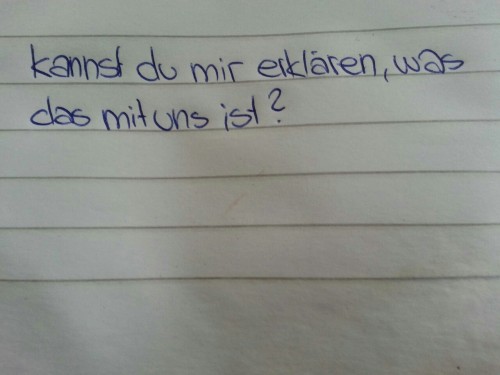 kannst du mir erklären, was
das mit uns ist?